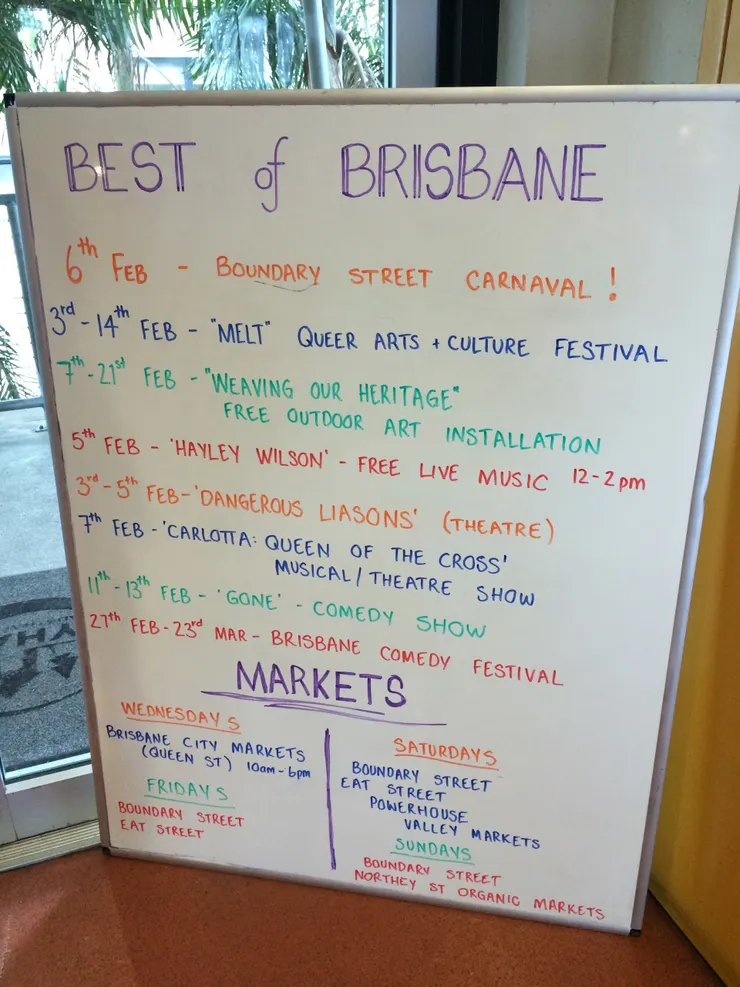 BEST of BRISBANE
6th FEB - BOUNDARY STREET CARNAVAL!
3rd - 14th FEB - "MELT" QUEER ARTS + CULTURE FESTIVAL
7th - 21st FEB - "WEAVING OUR HERITAGE"
FREE OUTDOOR ART INSTALLATION
5th FEB - 'HAYLEY WILSON' - FREE LIVE MUSIC 12-2pm
3rd - 5th FEB - 'DANGEROUS LIASONS' (THEATRE)
7th FEB - 'CARLOTTA: QUEEN OF THE CROSS'
MUSICAL / THEATRE SHOW
11th - 13th FEB - 'GONE' - COMEDY SHOW
27th FEB - 23rd MAR - BRISBANE COMEDY FESTIVAL
MARKETS
WEDNESDAYS
BRISBANE CITY MARKETS
(QUEEN ST) 10am - 6pm
FRIDAYS
BOUNDARY STREET
EAT STREET
SATURDAYS
BOUNDARY STREET
EAT STREET
POWERHOUSE
VALLEY MARKETS
SUNDAYS
BOUNDARY STREET
NORTHEY ST ORGANIC MARKETS